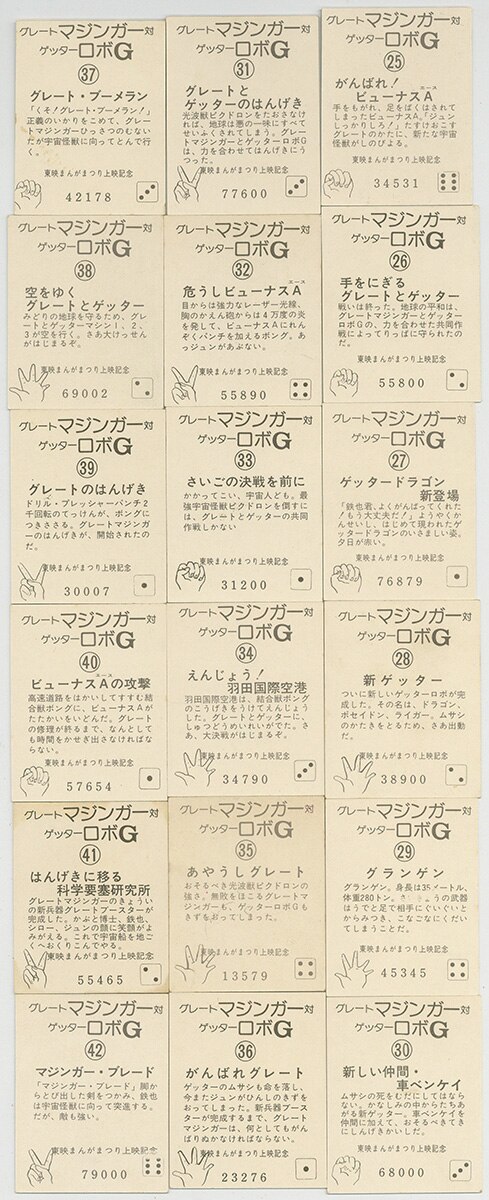 グレートマジンガー対
ゲッターロボG
㊲
グレート・ブーメラン
「くそ!グレート・ブーメラン!」
正義のいかりをこめて、グレー
トマジンガーひっさつのむない
たが宇宙怪獣に向ってとんで行
く。
東映まんがまつり上映記念
42178
グレートマジンガー対
ゲッターロボG
㉛
グレートと
ゲッターのはんげき
光波獣ピクドロンをたおさなけ
れば、地球は悪の一味にすべて
せいふくされてしまう。グレー
トマジンガーとゲッターロボG
は、力を合わせてはんげきにう
つった。
東映まんがまつり上映記念
77600
グレートマジンガー対
ゲッターロボG
㉕
がんばれ!
ビューナスA
エース
手をもがれ、足をばくはされて
しまったビューナスA。「ジュン
しっかりしろ!」たすけおこす
グレートのかたに、新たな宇宙
怪獣がしのびよる。
東映まんがまつり上映記念
34531
グレートマジンガー対
ゲッターロボG
㊳
空をゆく
グレートとゲッター
みどりの地球を守るため、グレ
ートとゲッターマシン1、2、
3が空を行く。さあ大けっせん
がはじまるぞ。
東映まんがまつり上映記念
69002
グレートマジンガー対
ゲッターロボG
㉜
危うしビューナスA
エース
目からは強力なレーザー光線、
胸のかえん砲からは4万度の炎
を発して、ビューナスAにれん
ぞくパンチを加えるボング。あ
っジュンがあぶない。
東映まんがまつり上映記念
55890
グレートマジンガー対
ゲッターロボG
㉖
手をにぎる
グレートとゲッター
戦いは終った。地球の平和は、
グレートマジンガーとゲッター
ロボGの、力を合わせた共同作
戦によってりっぱに守られたの
だ。
東映まんがまつり上映記念
55800
グレートマジンガー対
ゲッターロボG
㊴
グレートのはんげき
ドリル・プレッシャーパンチ2
千回転のてっけんが、ボングに
つきささる。グレートマジンガ
ーのはんげきが、開始されたの
だ。
東映まんがまつり上映記念
30007
グレートマジンガー対
ゲッターロボG
㉝
さいごの決戦を前に
かかってこい、宇宙人ども。最
強宇宙獣ピクドロンを倒すに
は、グレートとゲッターの共同
作戦しかない
東映まんがまつり上映記念
31200
グレートマジンガー対
ゲッターロボG
㉗
ゲッタードラゴン
新登場
「鉄也君、よくがんばってくれた
!もう大丈夫だ!」ようやくか
んせいし、はじめて現われたゲ
ッタードラゴンのいさましい姿。
夕日が赤い。
東映まんがまつり上映記念
76879
グレートマジンガー対
ゲッターロボG
㊵
ビューナスAの攻撃
エース
高速道路をはかいしてすすむ結
合獣ボングに、ビューナスAが
たたかいをいどんだ。グレート
の修理が終るまで、なんとして
も時間をかせぎ出さなければな
らない。
東映まんがまつり上映記念
57654
グレートマジンガー対
ゲッターロボG
㉞
えんじょう!
羽田国際空港
羽田国際空港は、結合獣ボング
のこうげきをうけてえんじょう
した。グレートとゲッターに、
しゅつどうめいれいがでた。さ
あ、大決戦がはじまるぞ。
東映まんがまつり上映記念
34790
グレートマジンガー対
ゲッターロボG
㉘
新ゲッター
ついに新しいゲッターロボが完
成した。その名は、ドラゴン、
ポセイドン、ライガー。ムサシ
のかたきをとるため、さあ出動
だ。
東映まんがまつり上映記念
38900
グレートマジンガー対
ゲッターロボG
㊶
はんげきに移る
科学要塞研究所
グレートマジンガーのきょうい
の新兵器グレートブースターが
完成した。かぶと博士、鉄也、
シロー、ジュンの顔に笑顔がよ
みがえる。これで宇宙船を地ご
くへおくりこんでやる。
東映まんがまつり上映記念
55465
グレートマジンガー対
ゲッターロボG
㉟
あやうしグレート
おそるべき光波獣ピクドロンの
強さ。無敗をほこるグレートマ
ジンガーも、ゲッターロボGも
きずをおってしまった。
東映まんがまつり上映記念
13579
グレートマジンガー対
ゲッターロボG
㉙
グランゲン
グランゲン。身長は35メートル、
体重280トン。さ　　ょうの武器
はうでと足で相手にぐいぐいと
からみつき、こなごなにくだい
てしまうことだ。
東映まんがまつり上映記念
45345
グレートマジンガー対
ゲッターロボG
㊷
マジンガー・ブレード
「マジンガー・ブレード」脚か
らとび出した剣をつかみ、鉄也
は宇宙怪獣に向って突進する。
だが、敵も強い。
東映まんがまつり上映記念
79000
グレートマジンガー対
ゲッターロボG
㊱
がんばれグレート
ゲッターのムサシも命を落し、
今またジュンがひんしのきずを
おってしまった。新兵器ブース
ターが完成するまで、グレート
マジンガーは、何としてもがん
ばりぬかなければならない。
東映まんがまつり上映記念
23276
グレートマジンガー対
ゲッターロボG
㉚
新しい仲間・
車ベンケイ
ムサシの死をむだにしてはなら
ない。かなしみの中からたちあ
がる新ゲッター。車ベンケイを
仲間に加えて、おそるべきてき
にしんげきかいしだ。
東映まんがまつり上映記念
68000